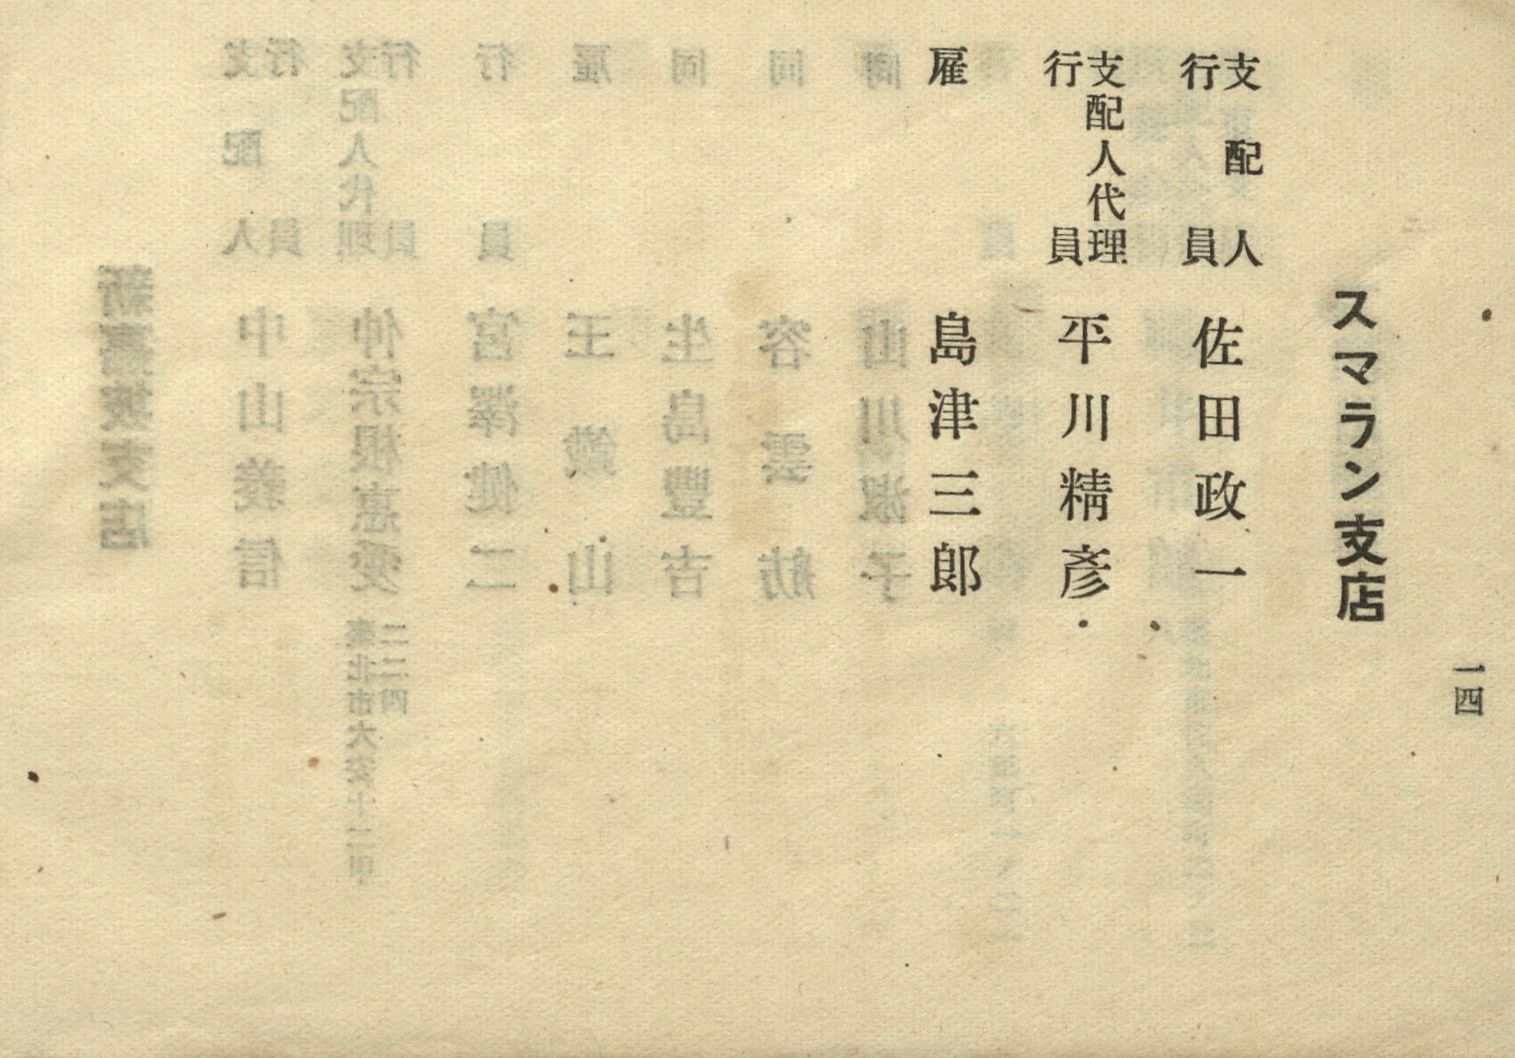 一四
スマラン支店
支配人
行員
佐田政一
支配人代理
行員
平川精彥
雇
島津三郎